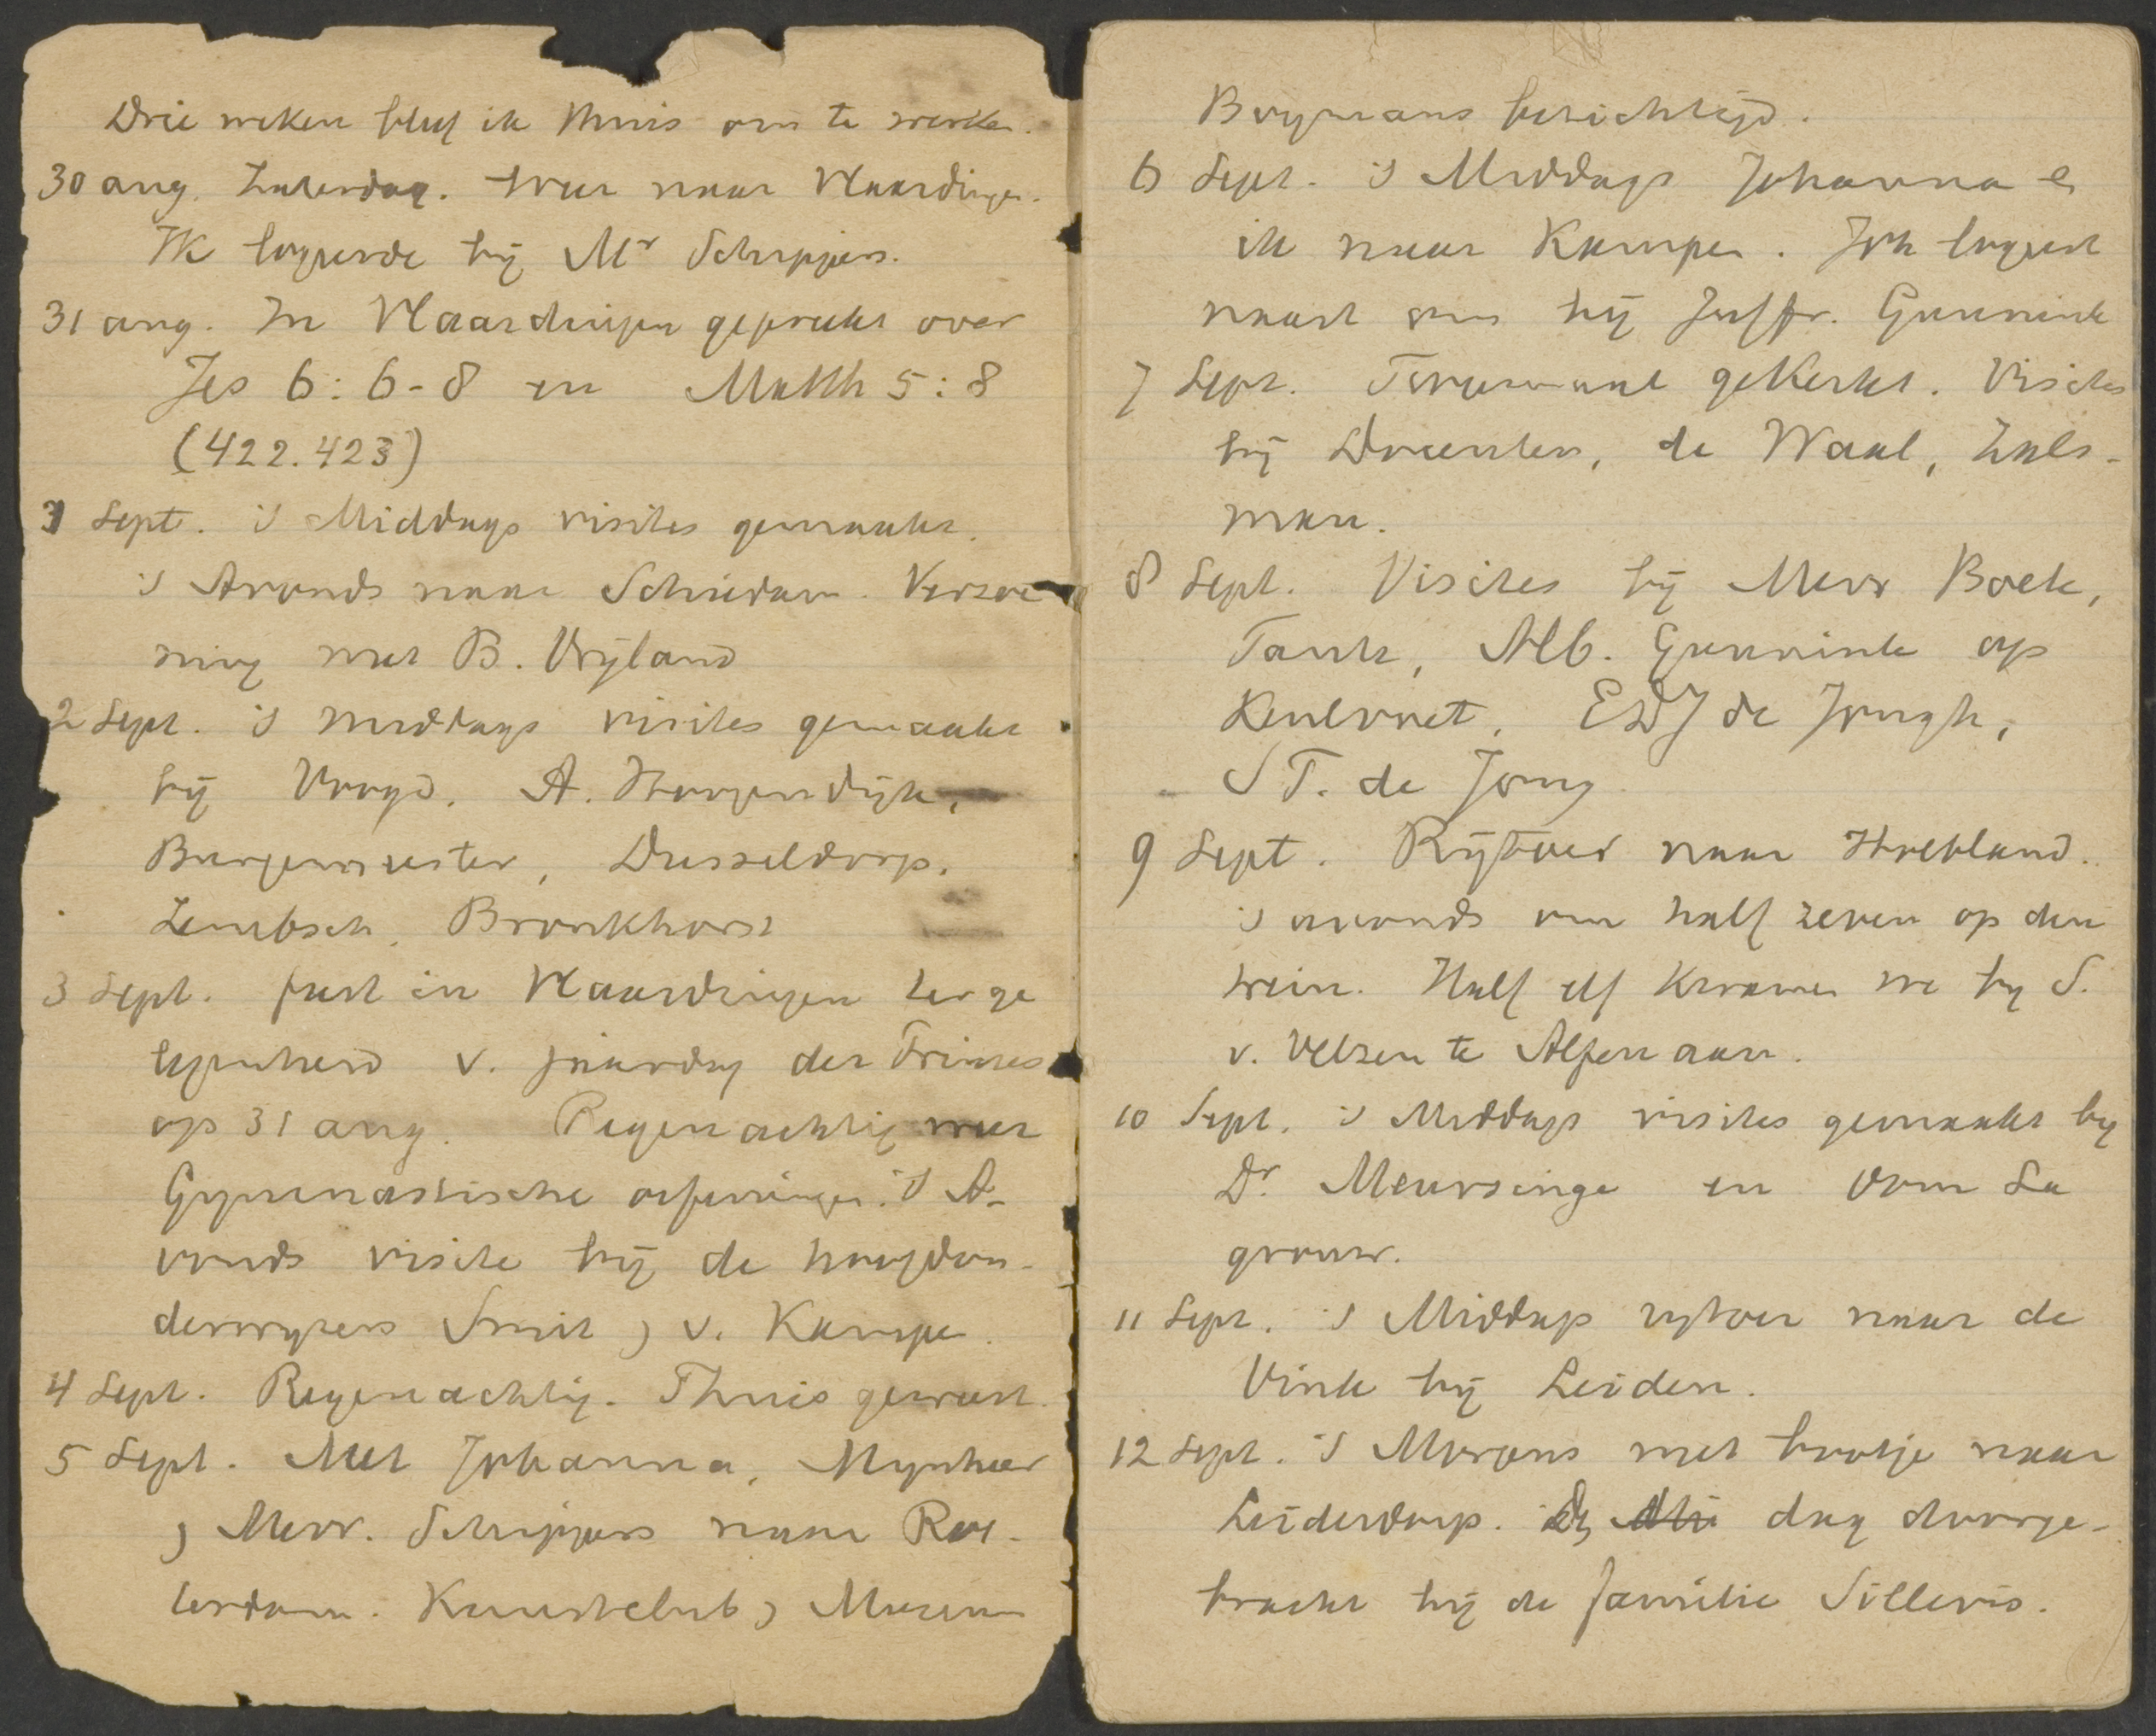 Drie weken bleef ik thuis om te werken.
30 aug. Zaterdag. Weer naar Vlaardingen.
Ik logeerde bij Mr Schippers.
31 aug. In Vlaardingen gepreekt over
Jes 6:6-8 en Matth 5:8
(422.423)
1 Sept. 's Middags visites gemaakt.
's Avonds naar Schiedam. Verzoe
ning met B. Vrijland
2 Sept. 's middags visites gemaakt
bij Voogd, A. Hoogendijk,
Burgemeester, Dusseldorp,
Lembsch, Bronkhorst
3 Sept. feest in Vlaardingen ter ge
legenheid v. jaardag der Prinses
op 31 aug. Regenachtig weer
Gymnastische oefeningen. 's A-
vonds visite bij de hoofdon-
derwijzers Smit & v. Kampen.
4 Sept. Regenachtig. Thuis geweest.
5 Sept. Met Johanna, Mynheer
& Mevr. Schippers naar Rot-
terdam. Kunstclub & Museum
Boymans bezichtigd.
6 Sept. 's Middags Johanna &
ik naar Kampen. Joh logeert
naast ons bij Juffr. Gunnink
7 Sept. Tweemaal gekerkt. Visites
bij Docenten, de Waal, Zals-
man.
8 Sept. Visites bij Mevr Boek,
Alb. Gunnink op
EDJ de Jongh,
ST. de Jong
9 Sept. Rijtoer naar Hoekland.
's avonds om half zeven op den
trein. Half elf kwamen we by S.
v. Velzen te Alfen aan.
10 Sept. 's Middags visites gemaakt by
Dr. Meursinge en Oom La
grouw.
11 Sept. 's Middags rytoer naar de
Vink bij Leiden.
12 Sept. 's Morgens met bootje naar
Leiderdorp. dag doorge-
bracht bij de familie Sillevis.